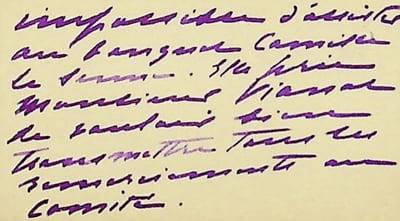 impossible d'assister
au banquet Camille
le Senne. Elle prie
Monsieur
de vouloir bien
transmettre tous les
remerciements au
Comité.